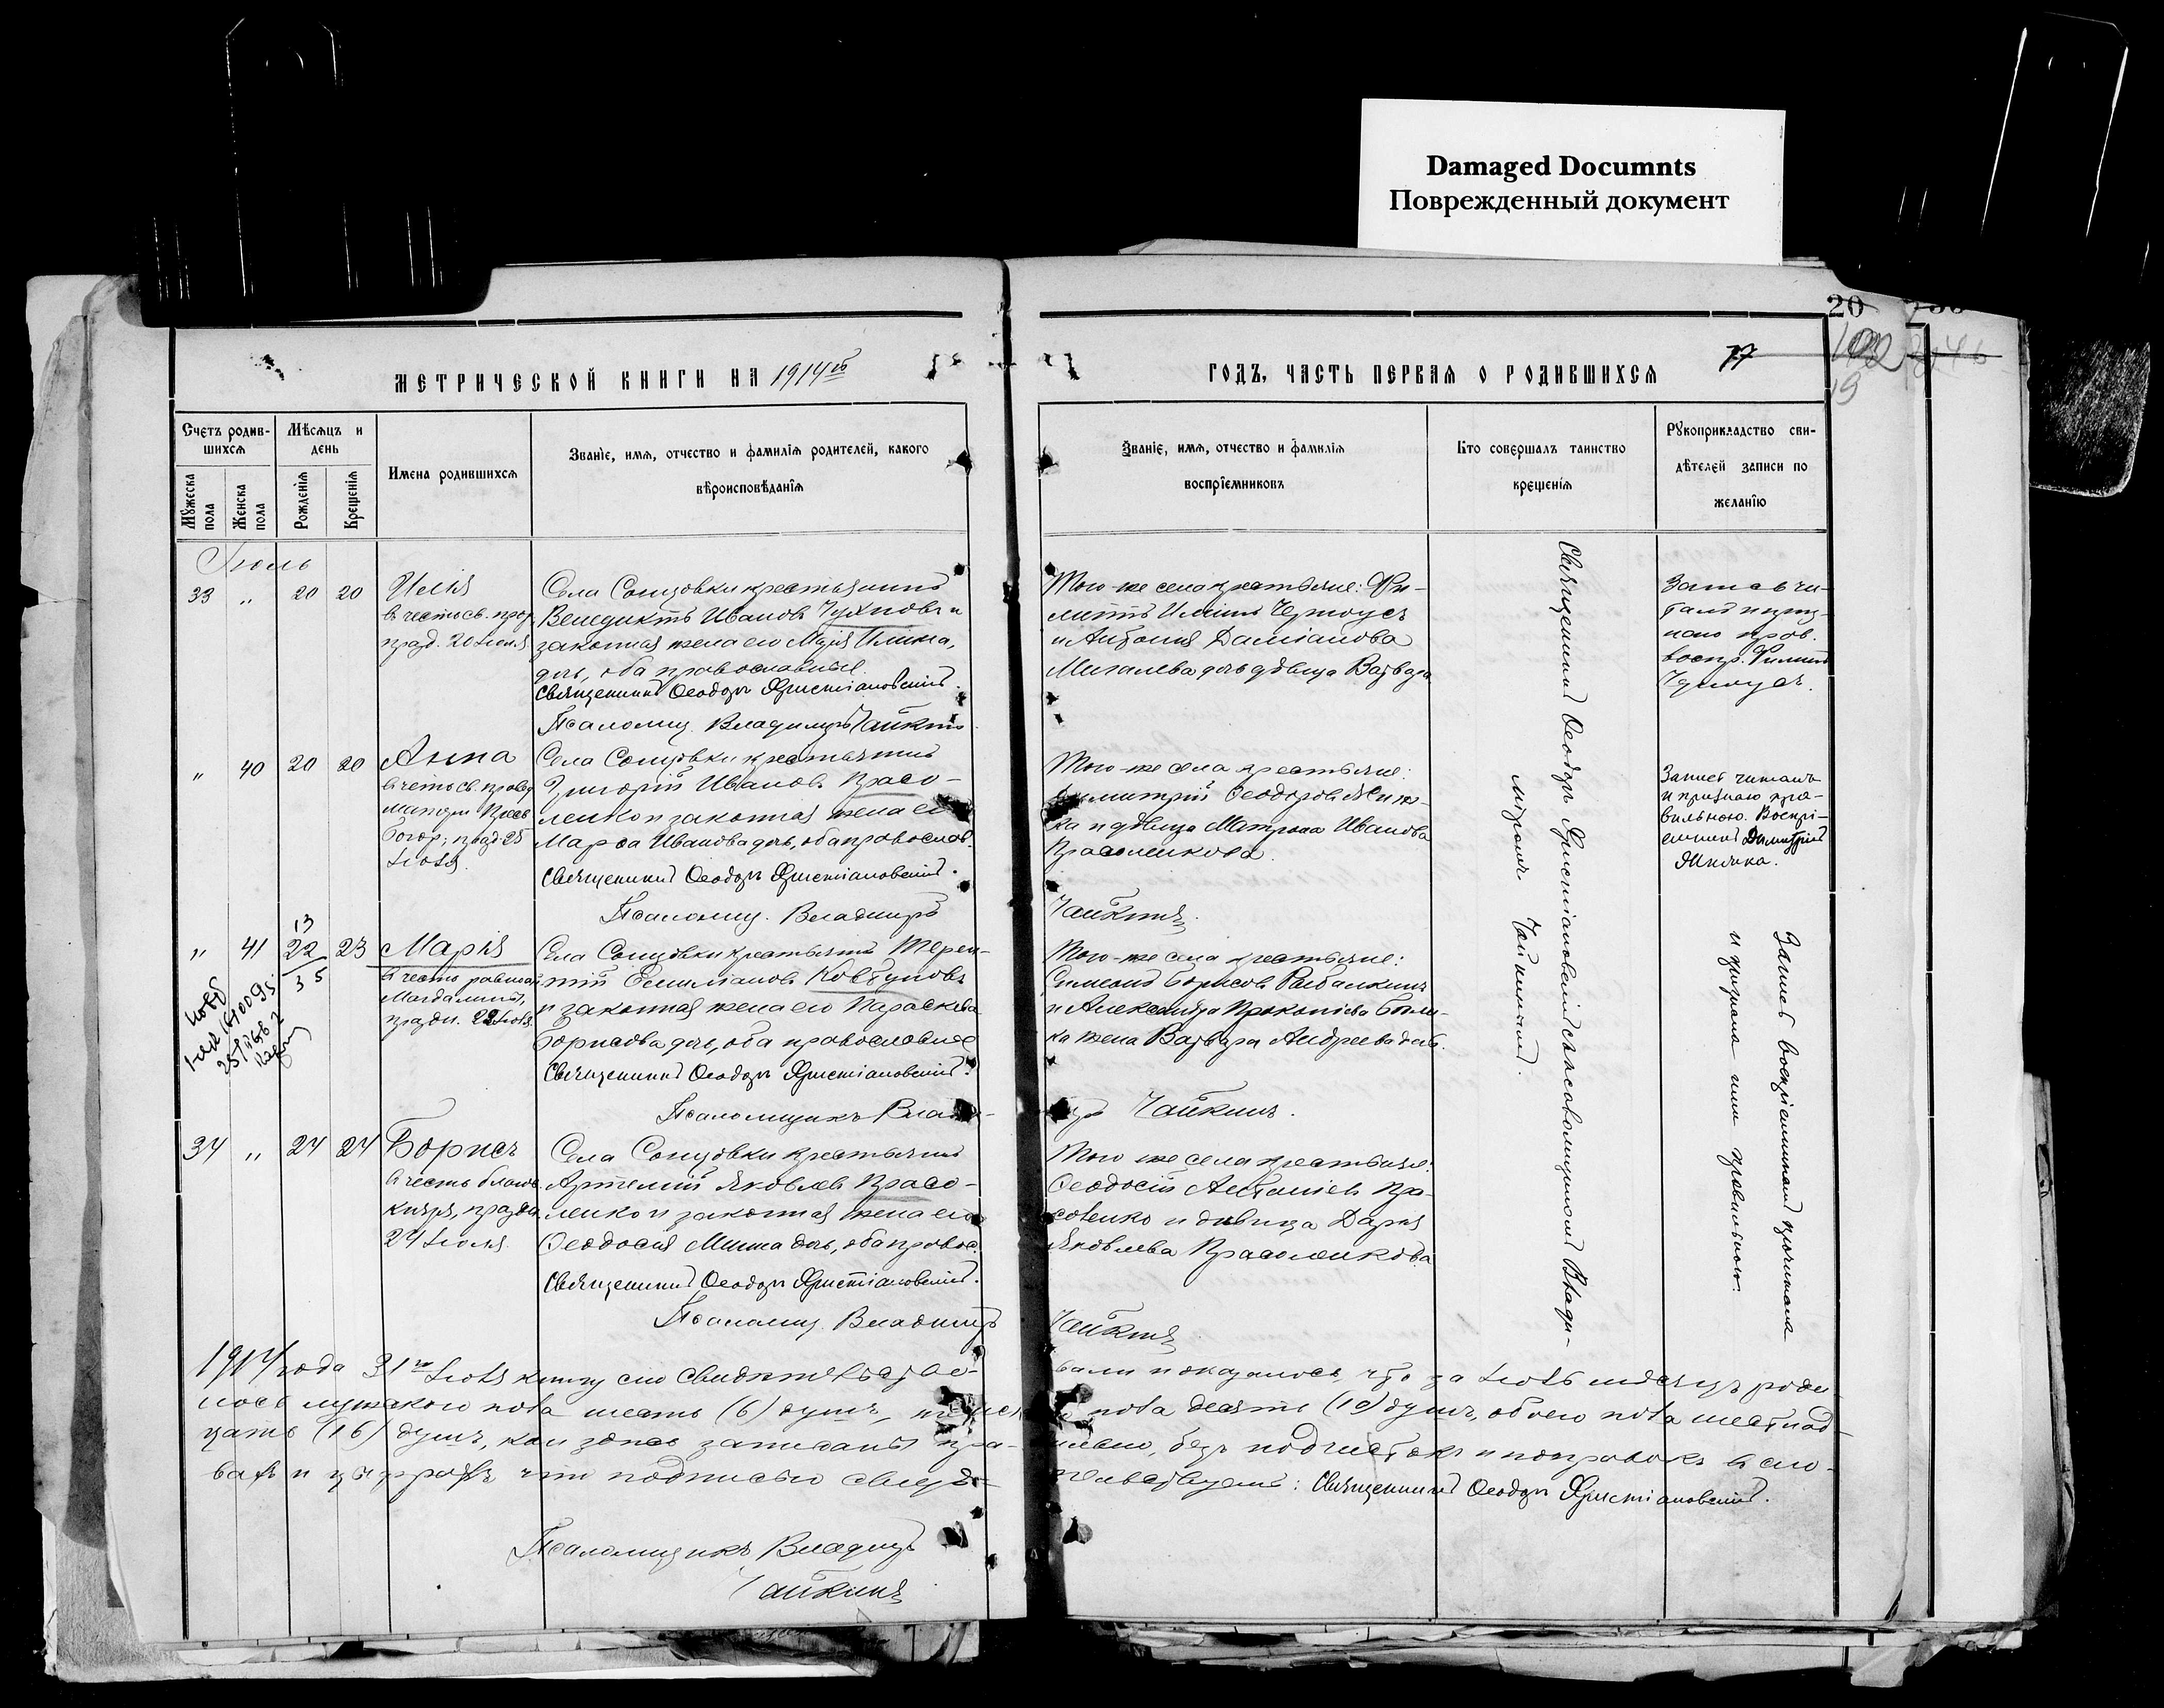 Damaged Documnts
Поврежденный документ
20
МЕТРИЧЕСКОЙ КНИГИ НА 1914й
ГОДЪ, ЧАСТЬ ПЕРВАЯ О РОДИВШИХСЯ
77
19
Счетъ родив-
шихся
Мужеска пола
Женска пола
Мѣсяцъ и
день
Рожденія
Крещенія
Имена родившихся
Званіе, имя, отчество и фамилія родителей, какого
вѣроисповѣданія
Званіе, имя, отчество и фамилія
воспріемниковъ
Кто совершалъ таинство
крещенія
Рукоприкладство сви-
дѣтелей записи по
желанію
Іюль
33 „ 20 20
Илія
въ честь св. прор.
празд. 20 Іюля.
Села Сонцовки крестьянинъ
Венедиктъ Ивановъ Чухновъ и
законная жена его Марія Ильина
дочь, оба православные
Священникъ Ѳеодоръ Христіановскій.
Псаломщ. Владиміръ Чайкинъ
Того-же села крестьяне: Фи-
липпъ Ильинъ Черноусъ
и Антонія Даміанова
дочь дѣвица Варвара
Запись чи-
талъ и приз-
наю прав.
воспр. Филиппъ
Черноусъ.
„ 40 20 20
Анна
въ честь св. правед.
матери Пресв.
Богор; празд. 25
Іюля.
Села Сонцовки крестьянинъ
Григорій Ивановъ Красо-
ленко и законная жена его
Марѳа Иванова дочь, оба православ.
Священникъ Ѳеодоръ Христіановскій.
Псаломщ. Владиміръ
Того-же села крестьяне:
Димитрій Ѳеодоровъ
ка и дѣвица Матрона Иванова
Красоленкова.
Чайкинъ.
Запись читалъ
и признаю пра-
вильною. Воспрі-
емникъ Димитрій
„ 41 22 23
13
35
Марія
въ честь равноап.
Магдалины,
праздн. 22 Іюля.
Села Сонцовки крестьянинъ Терен-
тій Емиліановъ Ковтуновъ
и законная жена его Параскева
Борисова дочь, оба православные
Священникъ Ѳеодоръ Христіановскій.
Псаломщикъ Влади-
Того-же села крестьяне:
Симеонъ Борисовъ Рыбалкинъ
и Александра Прокопіева
ка жена Варвара Андреева дочь.
міръ Чайкинъ.
34 „ 24 24
Борисъ
въ честь благов.
князя, праздн.
24 Іюля.
Села Сонцовки крестьянинъ
Артемій Яковлевъ Красо-
ленко и законная жена его
Ѳеодосія Минина дочь, оба правос.
Священникъ Ѳеодоръ Христіановскій.
Псаломщ. Владиміръ
Того же села крестьяне:
Ѳеодосій Антоніевъ Кра-
соленко и дѣвица Дарія
Яковлева Красоленкова
Чайкинъ
Священникъ Ѳеодоръ Христіановскій съ псаломщикомъ Влади-
міромъ Чайкинымъ.
Запись воспріемникамъ прочитана
и признана ими правильною.
1914 года 31го Іюля книгу сію свидѣтельство-
вали и оказалось, что за Іюль мѣсяцъ роди-
лось мужского пола шесть (6) душъ, женск
пола десять (10) душъ, обоего пола шестнад-
цать (16) душъ, кои здѣсь записаны пра-
вильно, безъ подчистокъ и поправокъ въ сло-
вахъ и цыфрахъ, что подписью свидѣ-
тельствуемъ: Священникъ Ѳеодоръ Христіановскій.
Псаломщикъ Владиміръ
Чайкинъ